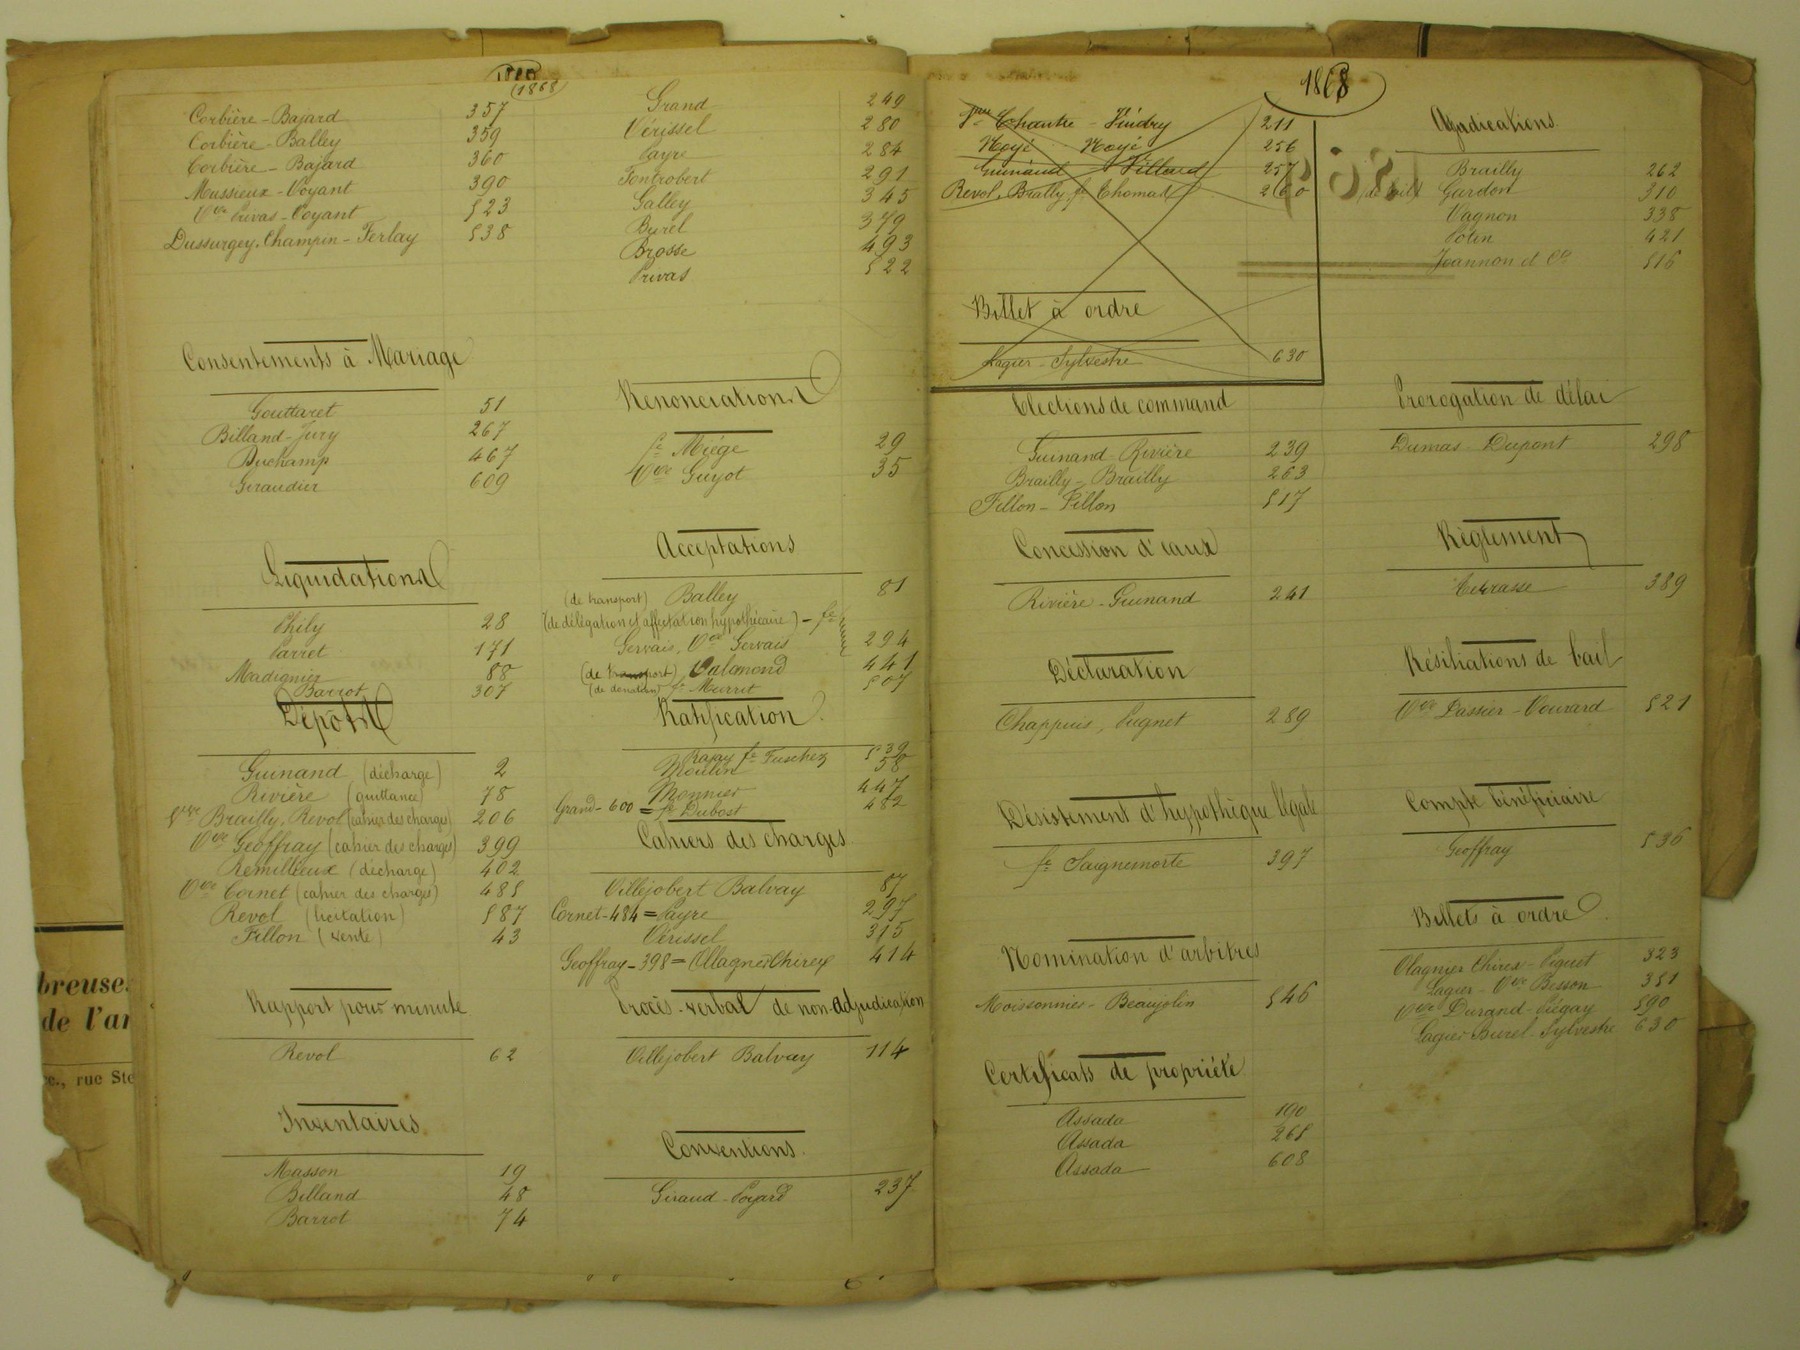 1868
Corbière - Bajard 357
Corbière - Balley 359
Corbière - Bajard 360
Mussieux - Voyant 390
Vve Privas - Voyant 523
Dussurgey, Champin - Ferlay 538
Consentements à Mariage
Gouttaret 51
Billand - Jury 267
Duchamp 467
Giraudier 609
Liquidations
Phily 28
Parret 171
Madignier 88
Barrot 307
Dépôts
Guinand (décharge) 2
Rivière (quittance) 78
Vve Brailly, Revol (cahier des charges) 206
Vve Geoffray (cahier des charges) 399
Remillieux (décharge) 402
Vve Cornet (cahier des charges) 485
Revol (licitation) 587
Fillon (vente) 43
Rapport pour minute
Revol 62
Inventaires
Masson 19
Billand 48
Barrot 74
Grand 249
Vérissel 280
Payre 284
Fontrobert 291
Galley 345
Burel 379
Brosse 493
Privas 522
Renonciations
fe Miége 29
Vve Guyot 35
Acceptations
(de transport) Balley 81
(de délégation et affectation hypothécaire) - fe
Gervais, Vve Gervais 294
(de transport) Calamond 441
(de donation) fe Murrit 507
Ratification
Rajay fe Fuschez 539
Moulin 58
Monnier 447
Grand - 600 = fe Dubost 482
Cahiers des charges
Villejobert Balvay 87
Cornet - 484 = Payre 297
Vérissel 315
Geoffray - 398 = Ollagnier Chirex 414
Procès-verbal de non-adjudication
Villejobert Balvay 114
Conventions
Giraud - Poyard 237
1868
Chantre - Vindry 211
Noyé Noyé 256
Guinand Villard 257
Revol, Brailly, fe Thomas 260
Billet à ordre
Lagier - Sylvestre 630
Elections de command
Guinand - Rivière 239
Brailly - Brailly 263
Fillon - Fillon 517
Concession d'eaux
Rivière - Guinand 241
Déclaration
Chappuis, Pugnet 289
Désistement d'hypothèque légale
fe Saignemorte 397
Nomination d'arbitres
Moissonnier - Beaujolin 546
Certificats de propriété
Assada 190
Assada 268
Assada 608
Ajudications
Brailly 262
Gardon 310
Vagnon 338
Potin 421
Joannon et Cie 516
Prorogation de délai
Dumas - Dupont 298
Règlement
Terrasse 389
Résiliations de bail
Vve Passier - Vourard 521
Compte bénéficiaire
Geoffray 536
Billets à ordre
Olagnier Chirex - Piguet 323
Lagier - Vve Besson 351
Vve Durand - Piégay 590
Lagier Burel - Sylvestre 630
breuses
de l'ar
rue Ste